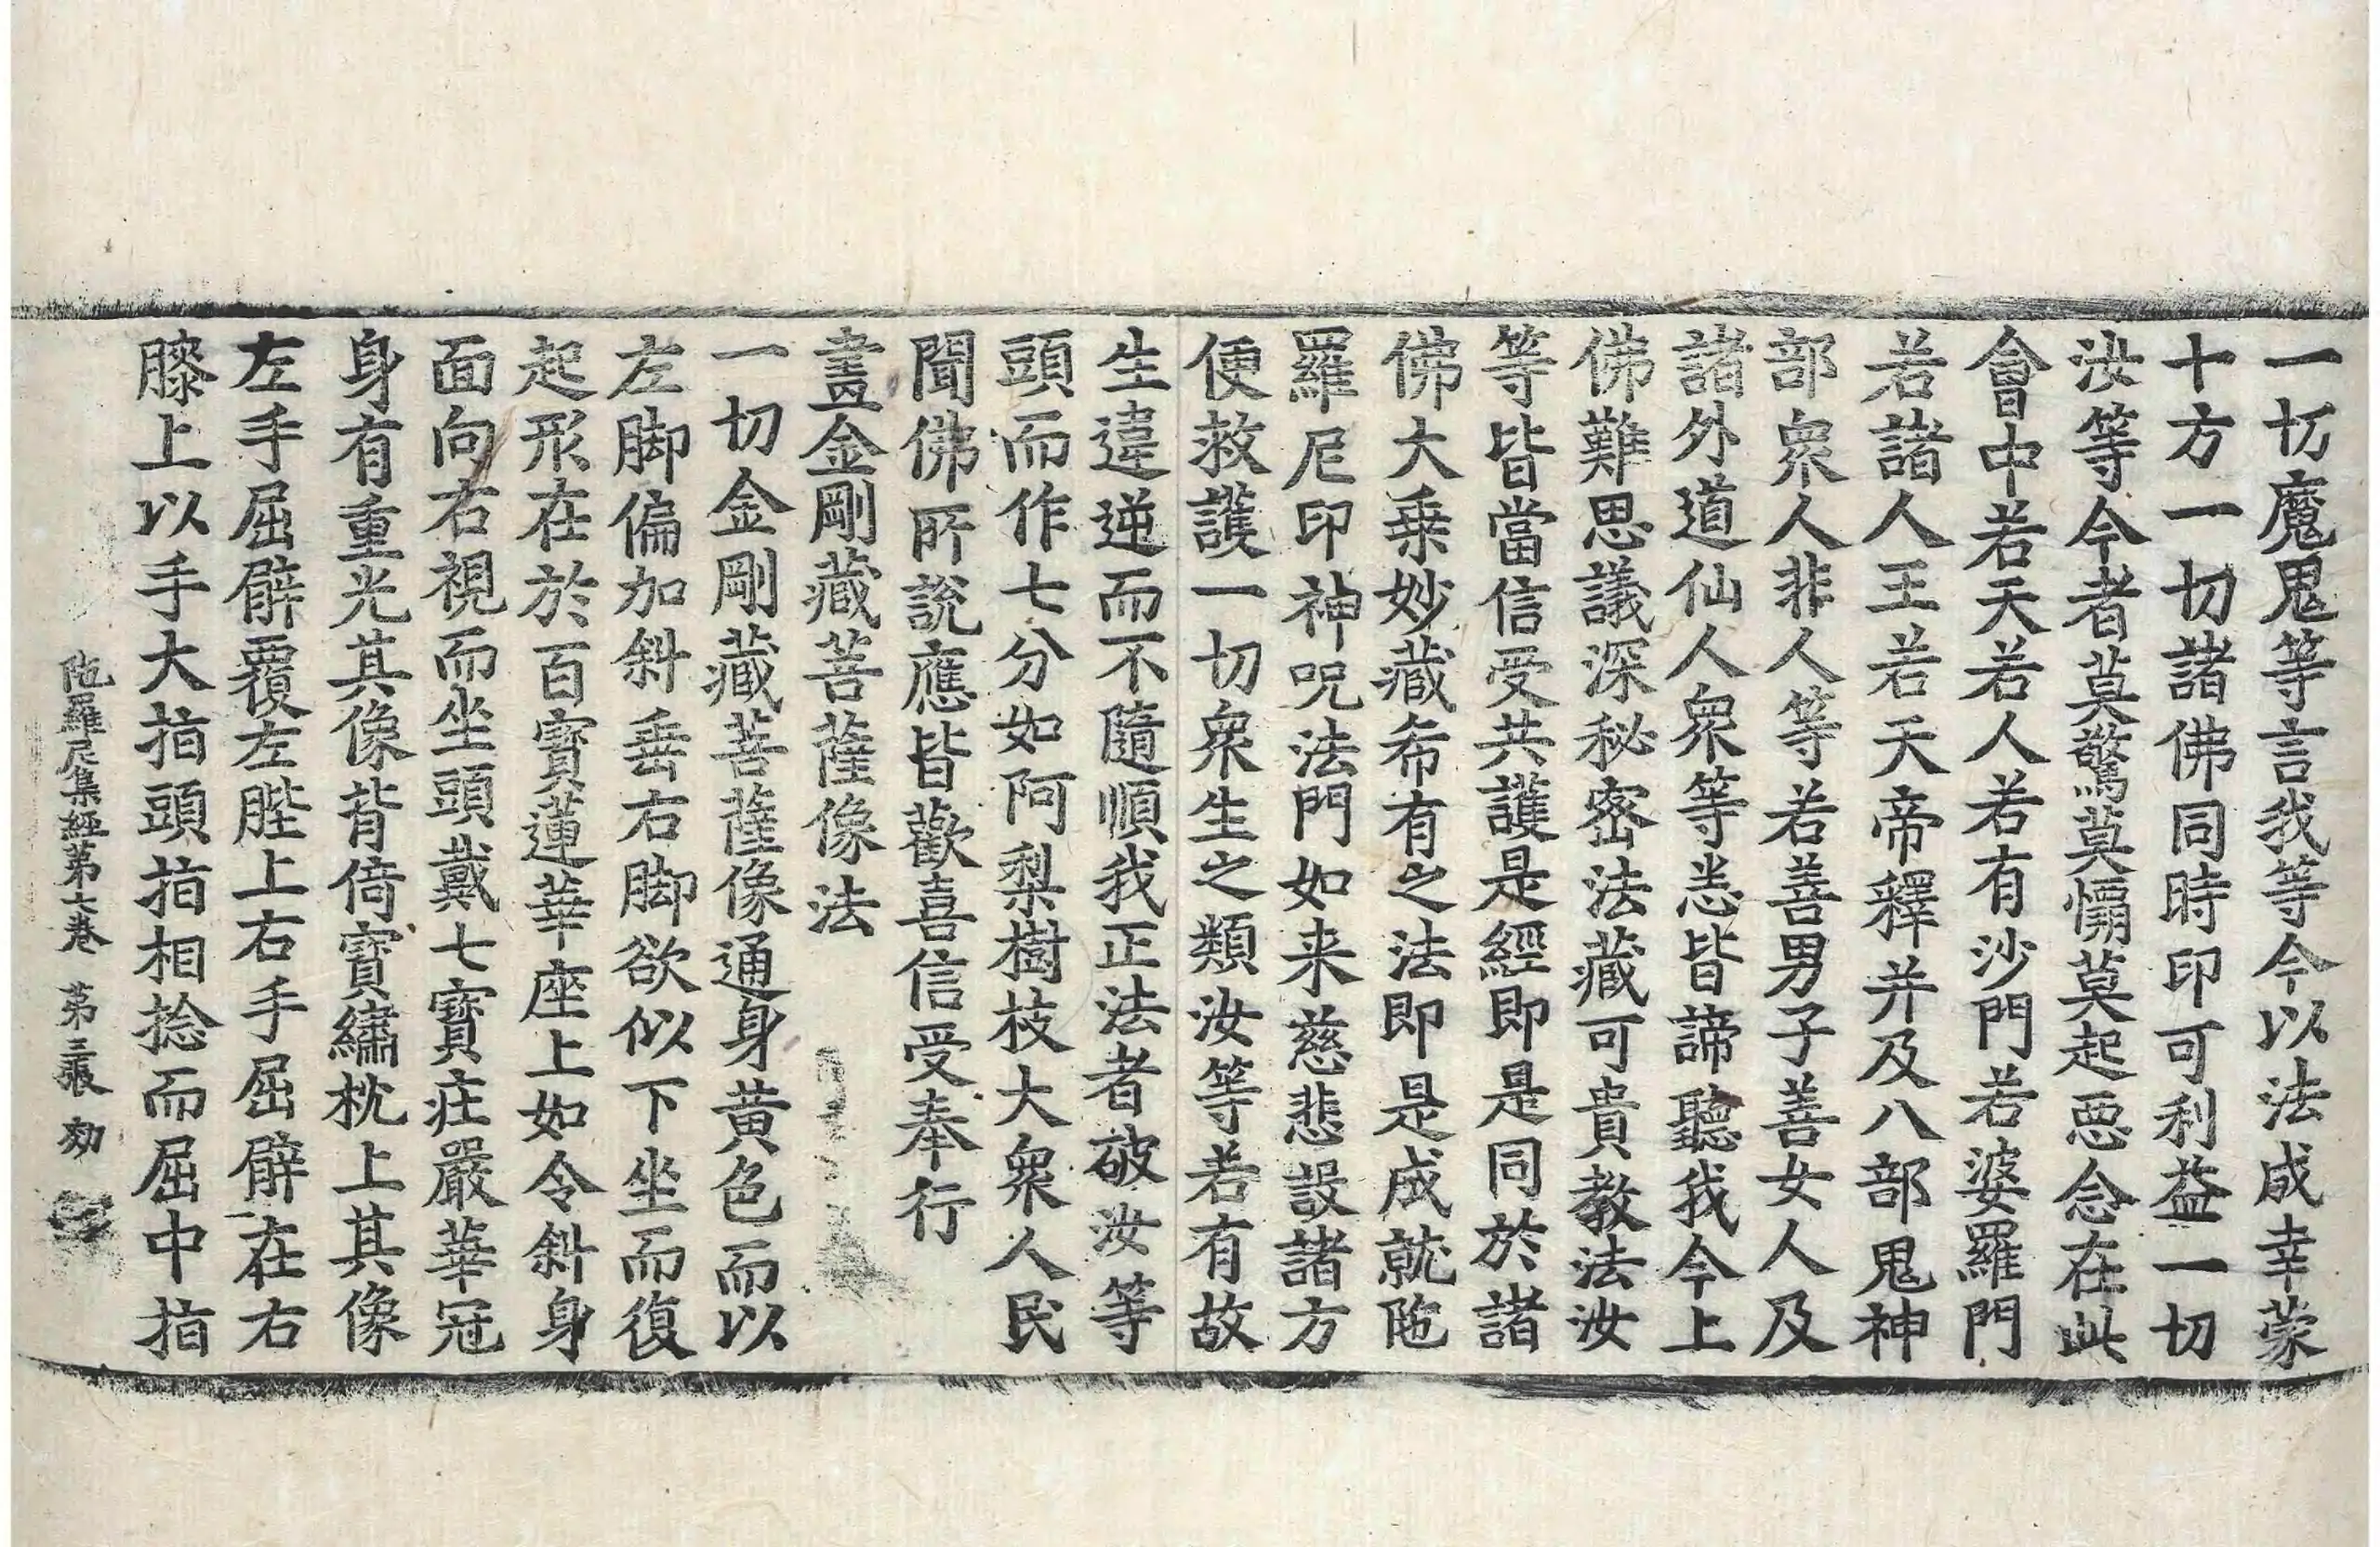 一切魔鬼等言我等今以法成幸蒙
十方一切諸佛同時印可利益一切
汝等今者莫驚莫懼莫起惡念在此
會中若天若人若有沙門若婆羅門
若諸人王若天帝釋并及八部鬼神
部衆人非人等若善男子善女人及
諸外道仙人衆等悉皆諦聽我今上
佛難思議深秘密法藏可貴教法汝
等皆當信受共護是經即是同於諸
佛大乗妙藏希有之法即是成就陁
羅尼印神呪法門如来慈悲設諸方
便救護一切衆生之類汝等若有故
生違逆而不隨順我正法者破汝等
頭而作七分如阿梨樹枝大衆人民
聞佛所說應皆歡喜信受奉行
畫金剛藏菩薩像法
一切金剛藏菩薩像通身黃色而以
左脚偏加斜垂右脚欲似下坐而復
起形在於百寶蓮華座上如令斜身
面向右視而坐頭戴七寶莊嚴華冠
身有重光其像背倚寶繡枕上其像
左手屈臂覆左䏶上右手屈臂在右
膝上以手大指頭指相捻而屈中指
陁羅尼集經第七卷 第三張 㓛